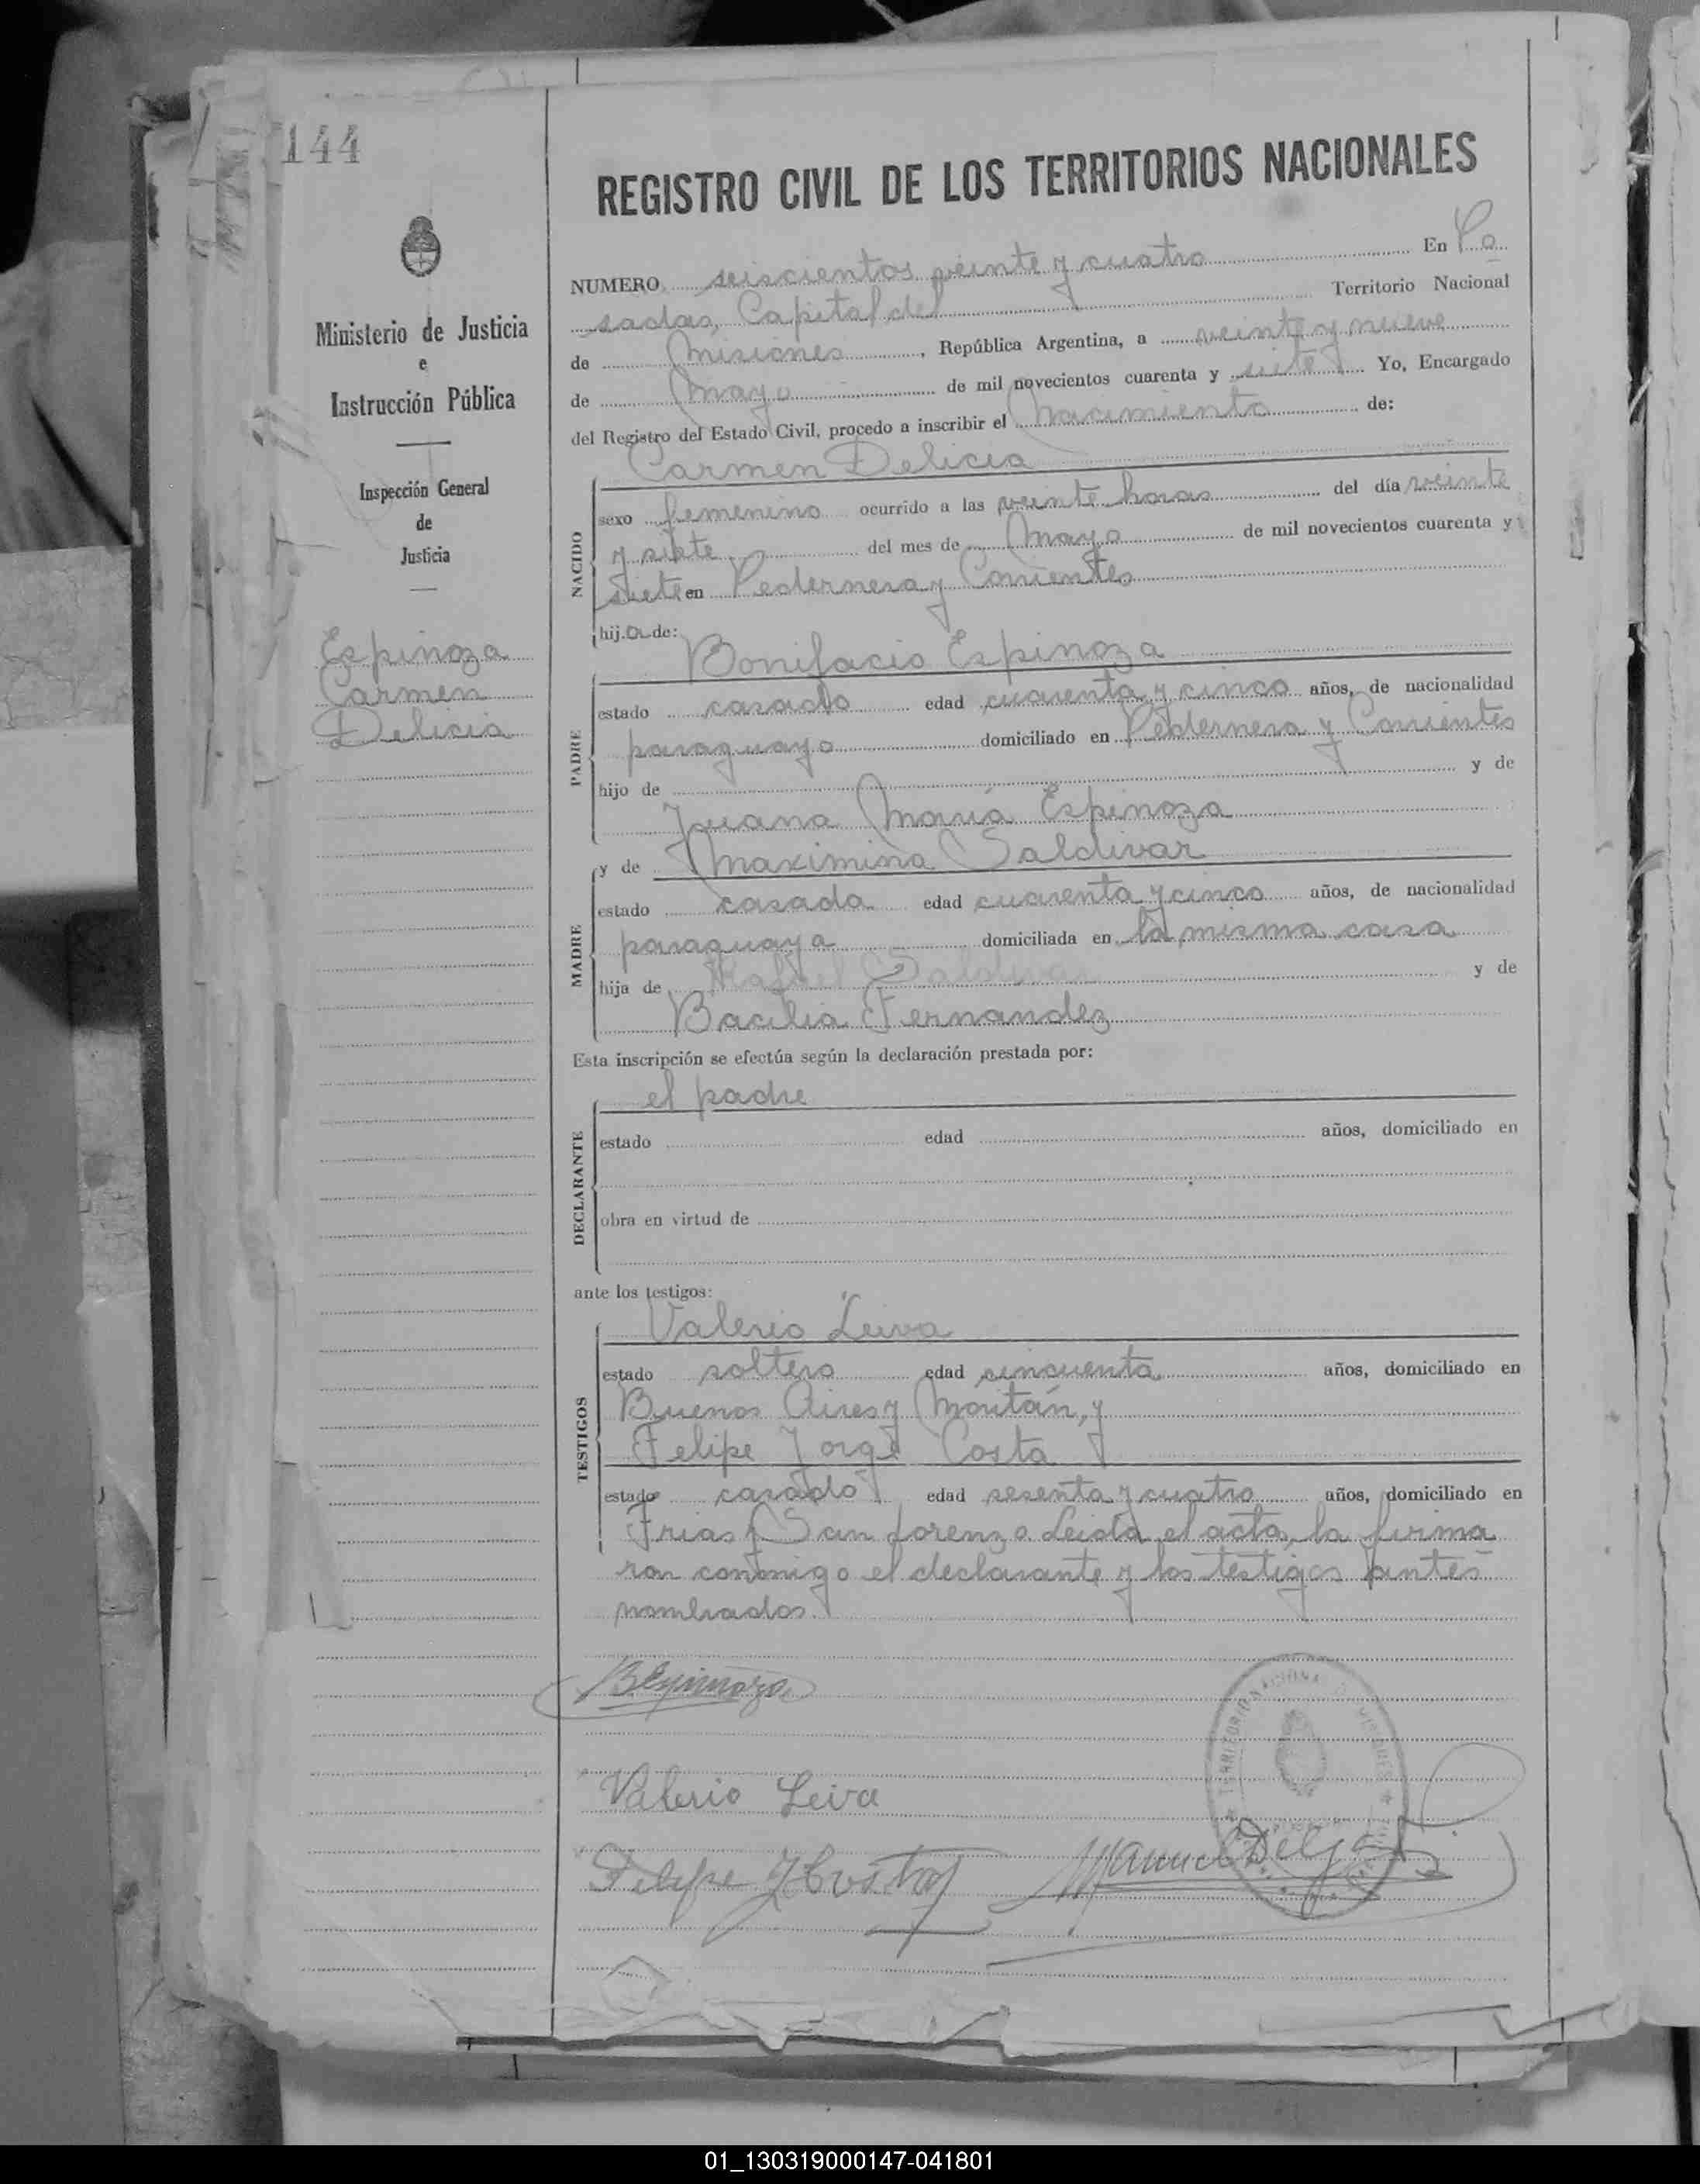 144
Ministerio de Justicia
e
Instrucción Pública
Inspección General
de
Justicia
Espinoza
Carmen
Delicia
REGISTRO CIVIL DE LOS TERRITORIOS NACIONALES
NUMERO seiscientos veinte y cuatro En Po
sadas, Capital del Territorio Nacional
de Misiones, República Argentina, a veinte y nueve
de Mayo de mil novecientos cuarenta y siete Yo, Encargado
del Registro del Estado Civil, procedo a inscribir el Nacimiento de:
Carmen Delicia
NACIDO
sexo femenino ocurrido a las veinte horas del día veinte
y siete del mes de Mayo de mil novecientos cuarenta y
siete en Pedernera y Corrientes
hij.a de:
Bonifacio Espinoza
PADRE
estado casado edad cuarenta y cinco años, de nacionalidad
paraguayo domiciliado en Pedernera y Corrientes
hijo de y de
Juana María Espinoza
y de Maximina Saldivar
MADRE
estado casada edad cuarenta y cinco años, de nacionalidad
paraguaya domiciliada en la misma casa
hija de Rafael Saldivar y de
Bacilia Fernandez
Esta inscripción se efectúa según la declaración prestada por:
el padre
DECLARANTE
estado edad años, domiciliado en
obra en virtud de
ante los testigos:
Valerio Leiva
TESTIGOS
estado soltero edad cincuenta años, domiciliado en
Buenos Aires y Moritán, y
Felipe Jorge Costa
estado casado edad sesenta y cuatro años, domiciliado en
Frias y San Lorenzo. Leida el acta, la firma
ron conmigo el declarante y los testigos antes
nombrados.
BEspinoza
Valerio Leiva
Felipe J Costa
Manuel
TERRITORIO NACIONAL DE MISIONES
01_130319000147-041801